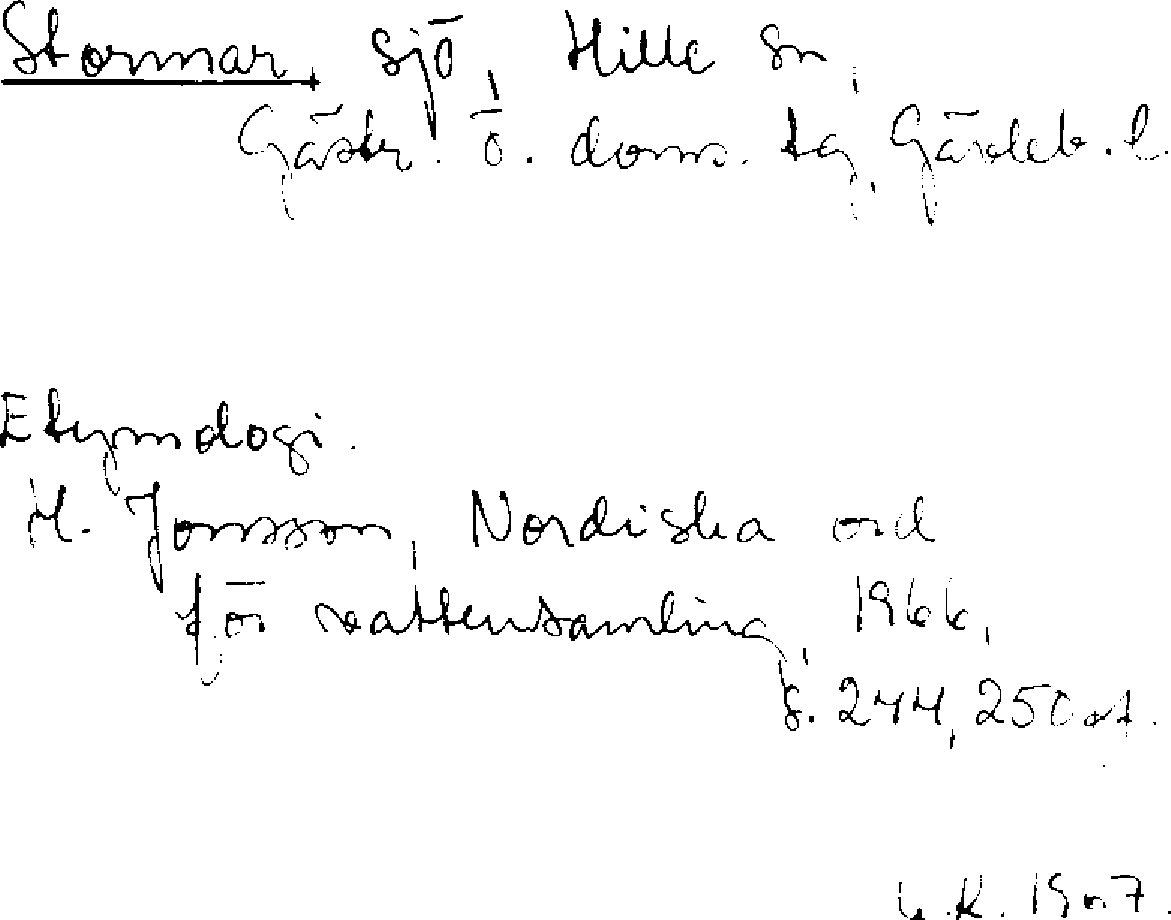 Stormar, sjö, Hille sn,
Gästr. ö. doms. tg, Gävleb. l.
Etymologi.
H. Jonsson, Nordiska ord
för vattensamling, 1966,
s. 244, 250
K.